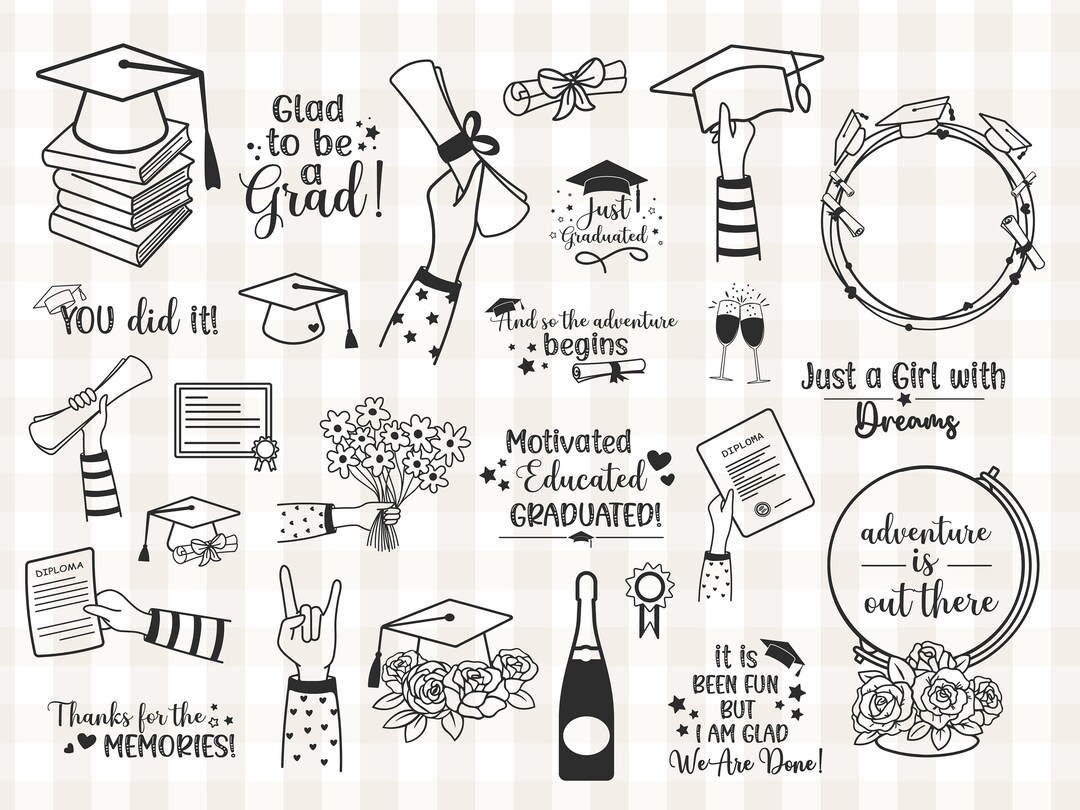 Glad
to be
a
Grad!
Just
Graduated
YOU did it!
And so the adventure
begins
Just a Girl with
Dreams
Motivated
Educated
GRADUATED!
DIPLOMA
adventure
is
out there
DIPLOMA
Thanks for the
MEMORIES!
it is
BEEN FUN
BUT
I AM GLAD
We Are Done!